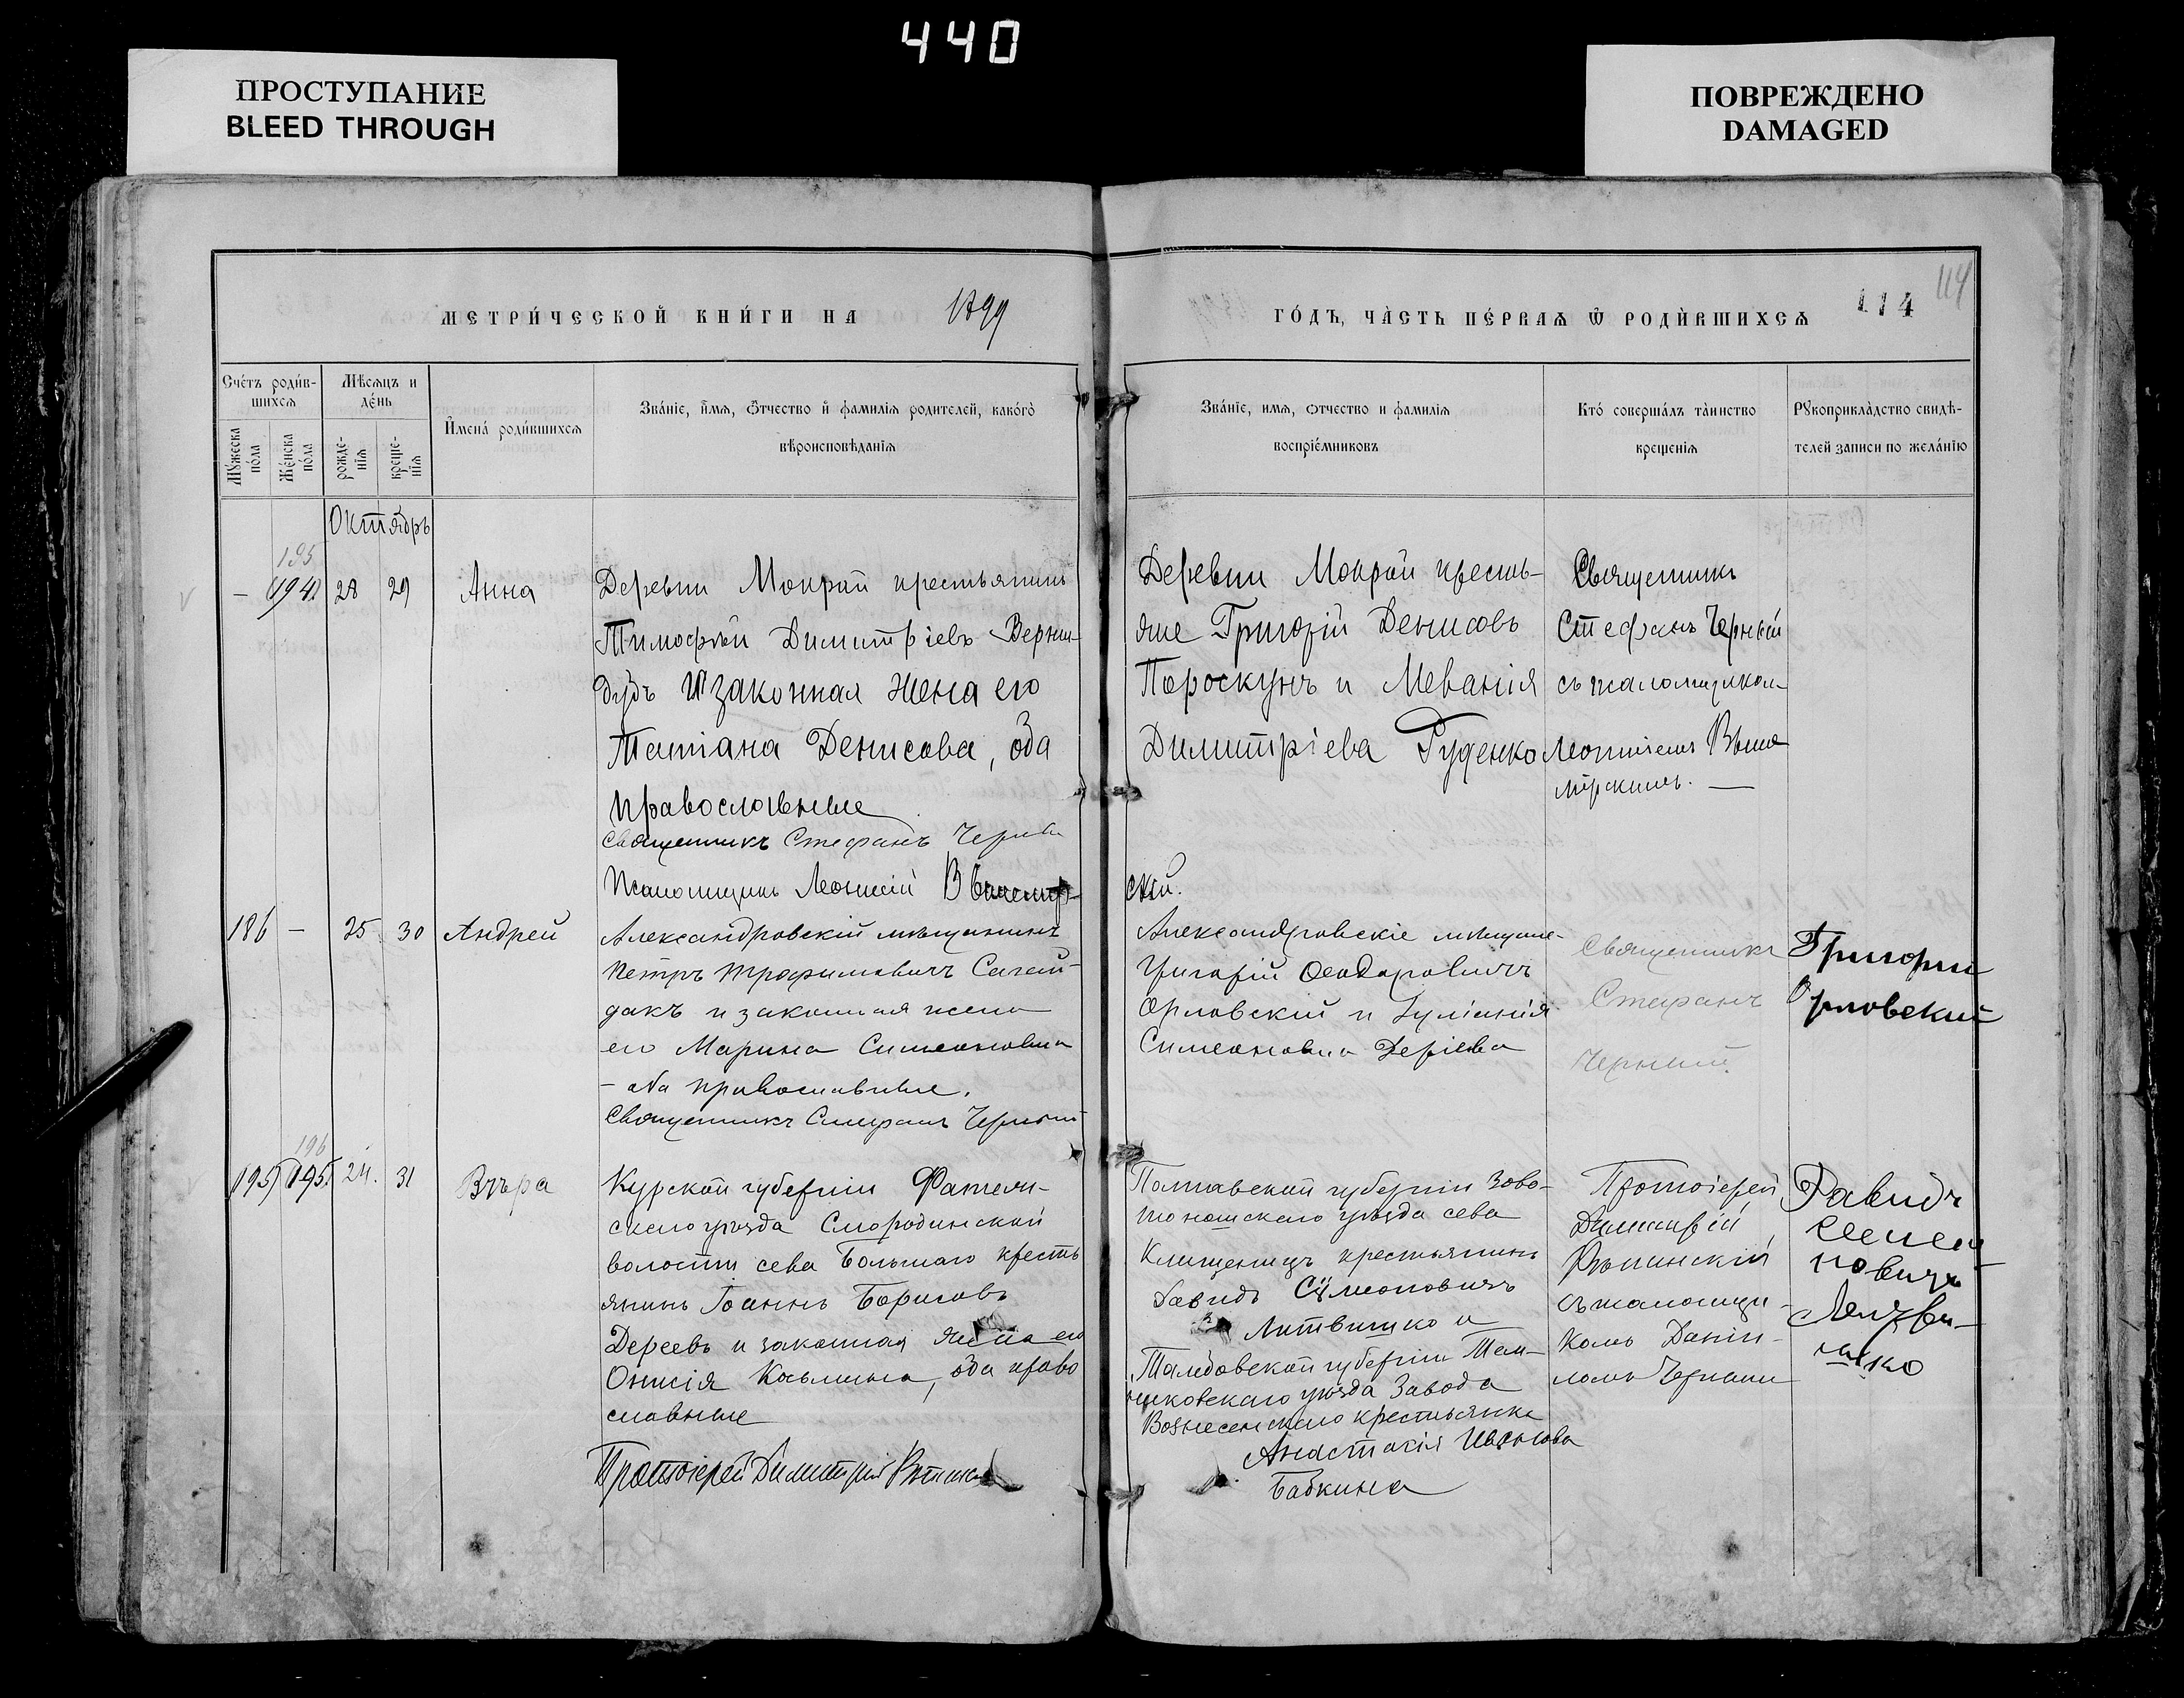 440
ПРОСТУПАНИЕ
BLEED THROUGH
ПОВРЕЖДЕНО
DAMAGED
МЕТРИ́ЧЕСКОЙ КНИ́ГИ НА 1899
ГО́ДЪ, ЧА̀СТЬ ПЕ́РВАѦ Ѿ РОДИ́ВШИХСѦ 114
114
Сче́тъ роди́в-
шихсѧ
Мѣсѧцъ и
де́нь
Му́жеска
по́ла
Же́нска
по́ла
рожде-
нїѧ
креще-
нїѧ
И҆мена́ роди́вшихсѧ
Зва́нїе, и҆́мѧ, ѻ҆́тчество и҆ фами́лїѧ родителей, како́гѡ
вѣроисповѣданїѧ
Зва́нїе, имѧ, ѻтчество и фамилїѧ
воспрїе́мниковъ
Кто́ соверша́лъ та̀инство
крещенїѧ
Рꙋкоприкла̀дство свидѣ-
телей записи по жела́нїю
Октябрь
195
— 194 28 29 Анна
Деревни Мокрой крестьянинъ
Тимофей Димитріевъ Верни-
дубъ и законная жена его
Татіана Денисова, оба
православные
Священникъ Стефанъ Черный
Псаломщикъ Леонтій
скій.
Деревни Мокрой кресть-
яне Григорій Денисовъ
Пороскунъ и Меванія
Димитріева Руденко
Священникъ
Стефанъ Черный
съ псаломщиком
Леонтіемъ
186 — 25 30 Андрей
Александровскій мѣщанинъ
Петръ Трофимовичъ Сагай-
дакъ и законная жена
его Марина Симеоновна
— оба православные.
Священникъ Стефанъ Черный
Александровскіе мѣщане-
Григорій Феодоровичъ
Орловскій и Іуліанія
Симеоновна Деріева
Священникъ
Стефанъ
Черный
Григорий
Орловский
196
195 195 24. 31 Вѣра
Курской губерніи Фатеж-
скаго уѣзда Смородинской
волости села Большаго кресть
янинъ Іоаннъ Борисовъ
Дереевъ и законная жена его
Онисія Косьмина, оба право
славные
Протоіерей Димитрій
Полтавской губерніи Золо-
тоношскаго уѣзда села
Клищенецъ крестьянинъ
Давидъ Сѵмеоновичъ
Литвишко и
Тамбовской губерніи Тем-
никовскаго уѣзда Завода
Вознесенскаго крестьянка
Анастасія Иванова
Бабкина
Протоіерей
Димитрій
Рѣпинскій
съ псаломщи-
комъ Даніи-
ломъ
Давидъ